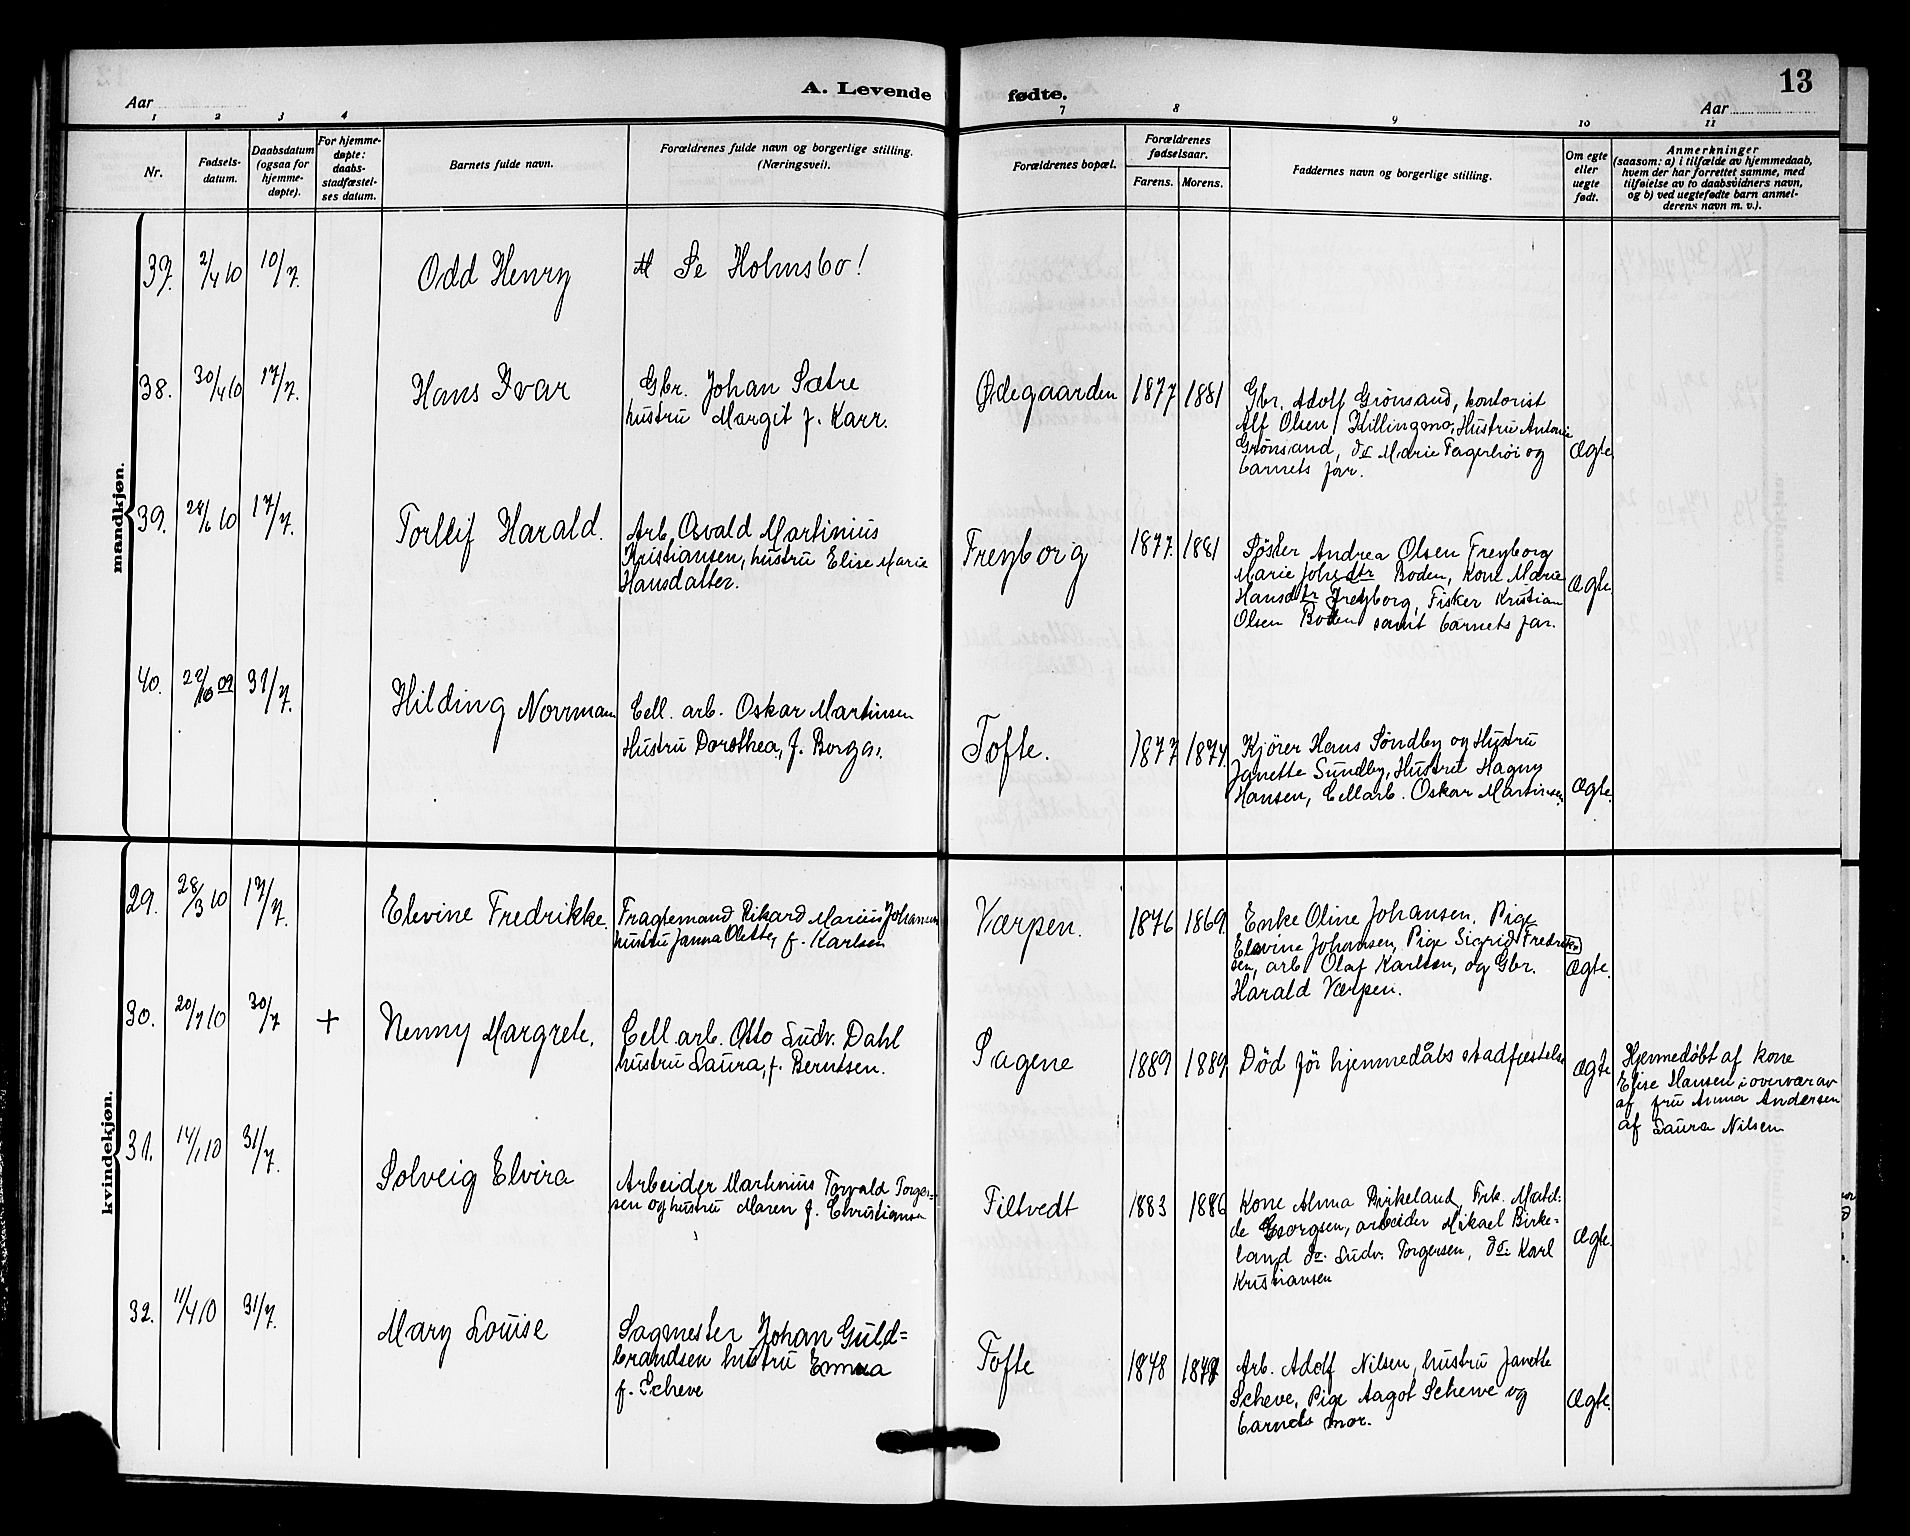 A. Levende fødte.
13
Aar
Aar
1 2 3 4 7 8 9 10 11
Nr.
Fødsels-
datum.
Daabsdatum
(ogsaa for
hjemme-
døpte).
For hjemme-
døpte:
daabs-
stadfæstel-
ses datum.
Barnets fulde navn.
Forældrenes fulde navn og borgerlige stilling.
(Næringsvei).
Forældrenes bopæl.
Forældrenes
fødselsaar.
Farens. Morens.
Faddernes navn og borgerlige stilling.
Om egte
eller
uegte
født.
Anmerkninger
(saasom: a) i tilfælde av hjemmedaab,
hvem der har forrettet samme, med
tilføielse av to daabsvidners navn,
og b) ved uegtefødte barn anmel-
derens navn m. v.).
mandkjøn.
37. 2/4 10 10/7. Odd Henry
Se Holmsbo!
38. 30/4 10 17/7. Hans Ivar
Gbr. Johan Sætre
hustru Margit f. Karr.
Ødegaarden 1877 1881
Gbr. Adolf Grønsand, kontorist
Alf Olsen Killingmo, Hustru Antonie
Grønsand, do Marie Fagerhøi og
barnets far.
Ægte
39. 28/6 10 17/7. Torleif Harald.
Arb. Osvald Martinius
Kristiansen, hustru Elise Marie
Hansdatter.
Freyborg 1877. 1881
Søster Andrea Olsen Freyborg
Marie Johsdtr Boden, Kone Marie
Hansdtr Freyborg, Fisker Kristian
Olsen Boden samt barnets far.
Ægte
40. 22/10 09 31/7. Hilding Norrmann
Cell. arb. Oskar Martinsen
Hustru Dorothea, f. Borge.
Tofte. 1877 1874.
Kjører Hans Sundby og Hustru
Janette Sundby, Hustru Hagny
Hansen, Cellarb. Oskar Martinsen
Ægte.
kvindekjøn.
29. 28/3 10 17/7. Elevine Fredrikke.
Fragtemand Rikard Marius Johansen
hustru Janna Olette, f. Karlsen
Værpen. 1876 1869
Enke Oline Johansen. Pige
Elevine Johansen, Pige Sigrid Fredrik
sen, arb Olaf Karlsen, og Gbr.
Harald Værpen.
Ægte.
30. 20/7 10 30/7 + Nenny Margrete.
Cell. arb. Otto Ludv. Dahl
hustru Laura, f. Berntsen.
Sagene 1889 1889
Død før hjemmedåbs stadfæstelse
Ægte
Hjemmedøbt af kone
Elise Hansen i overvær av
af fru Anna Andersen
af Laura Nilsen
31. 14/1 10 31/7. Solveig Elvira
Arbeider Martinius Torvald Torger-
sen og hustru Maren f. Christiansen
Filtvedt 1883 1886
Kone Alma Birkeland, Frk. Matil-
de Georgsen, arbeider Mikael Birke-
land do. Ludv. Torgersen, do. Karl
Kristiansen
Ægte.
32. 11/4 10 31/7. Mary Louise
Sagmester Johan Guld=
brandsen hustru Emma
f. Scheve
Tofte 1848
Arb. Adolf Nilsen, hustru Janette
Scheve, Pige Aagot Scheve og
barnets mor.
Ægte.